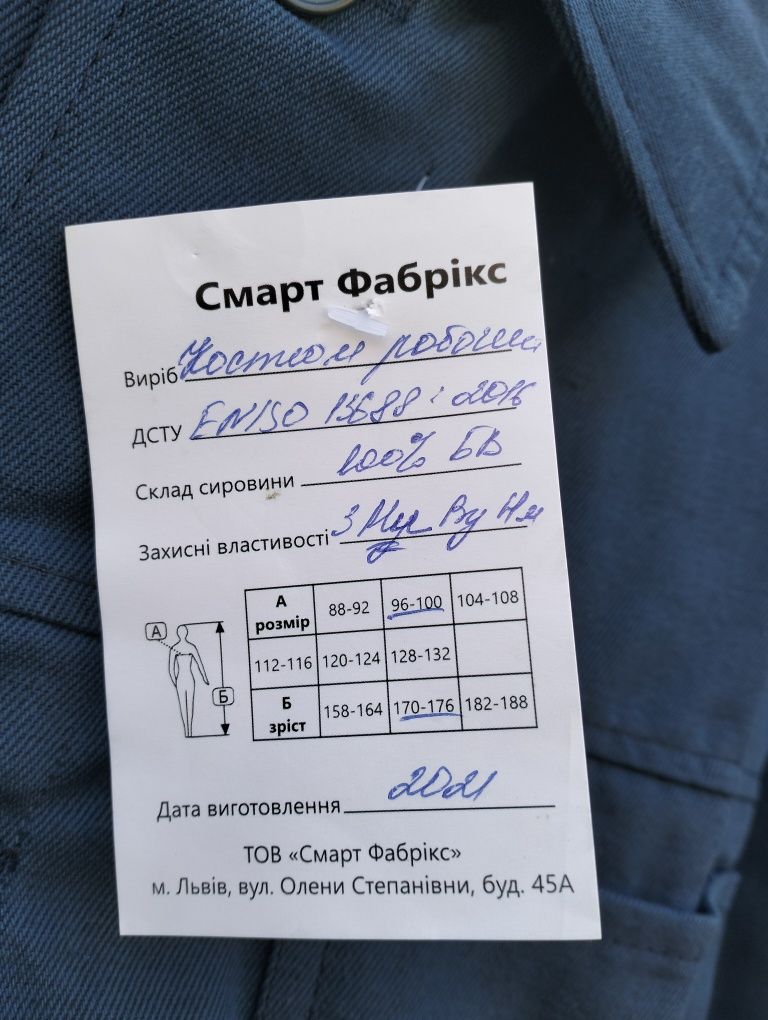 Смарт Фабрікс
Виріб Костюм робочий
ДСТУ EN ISO 13688:2016
Склад сировини 100% БВ
Захисні властивості З Ми Ву Нм
А розмір 88-92 96-100 104-108
112-116 120-124 128-132
Б зріст 158-164 170-176 182-188
А
Б
Дата виготовлення 2021
ТОВ «Смарт Фабрікс»
м. Львів, вул. Олени Степанівни, буд. 45А